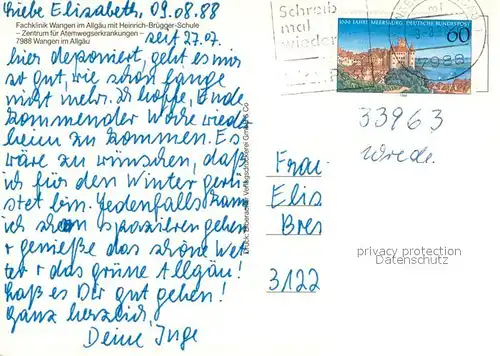 Liebe Elisabeth, 09.08.88
Fachklinik Wangen im Allgäu mit Heinrich-Brügger-Schule
– Zentrum für Atemwegserkrankungen –
7988 Wangen im Allgäu
seit 27.07.
hier deponiert, geht es mir
so gut, wie schon lange
nicht mehr. Ich hoffe, Ende
kommender Woche wieder
heim zu kommen. Es
wäre zu wünschen, daß
ich für den Winter gerü-
stet bin. Jedenfalls kann
ich schon spazieren gehen
+ genieße das schöne Wet-
ter + das grüne Allgäu!
Laß es Dir gut gehen!
Ganz herzlich,
Deine Inge
Schreib
mal
wieder
1000 JAHRE MEERSBURG DEUTSCHE BUNDESPOST
60
7988
33963
Wrede.
Frau
Elis
Bres
3122
privacy protection
Datenschutz